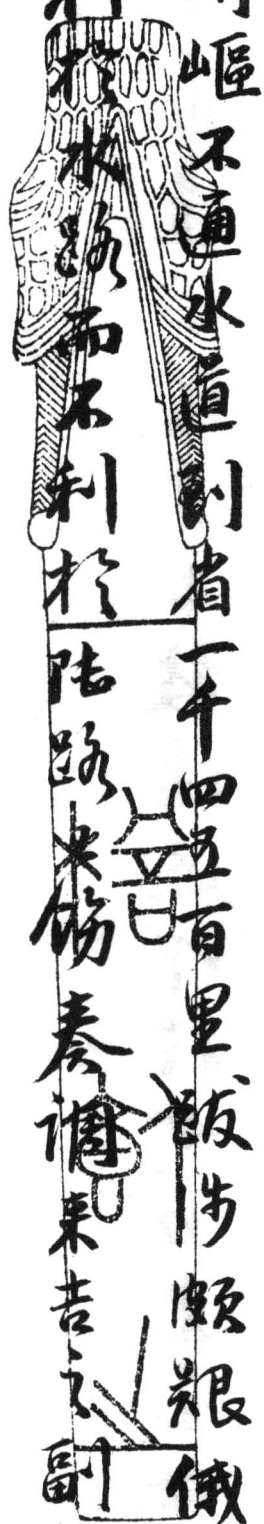 嶇不通水道到省一千四五百里跋涉頗艱俄
於水路而不利於陸路飭奏調來吉之副